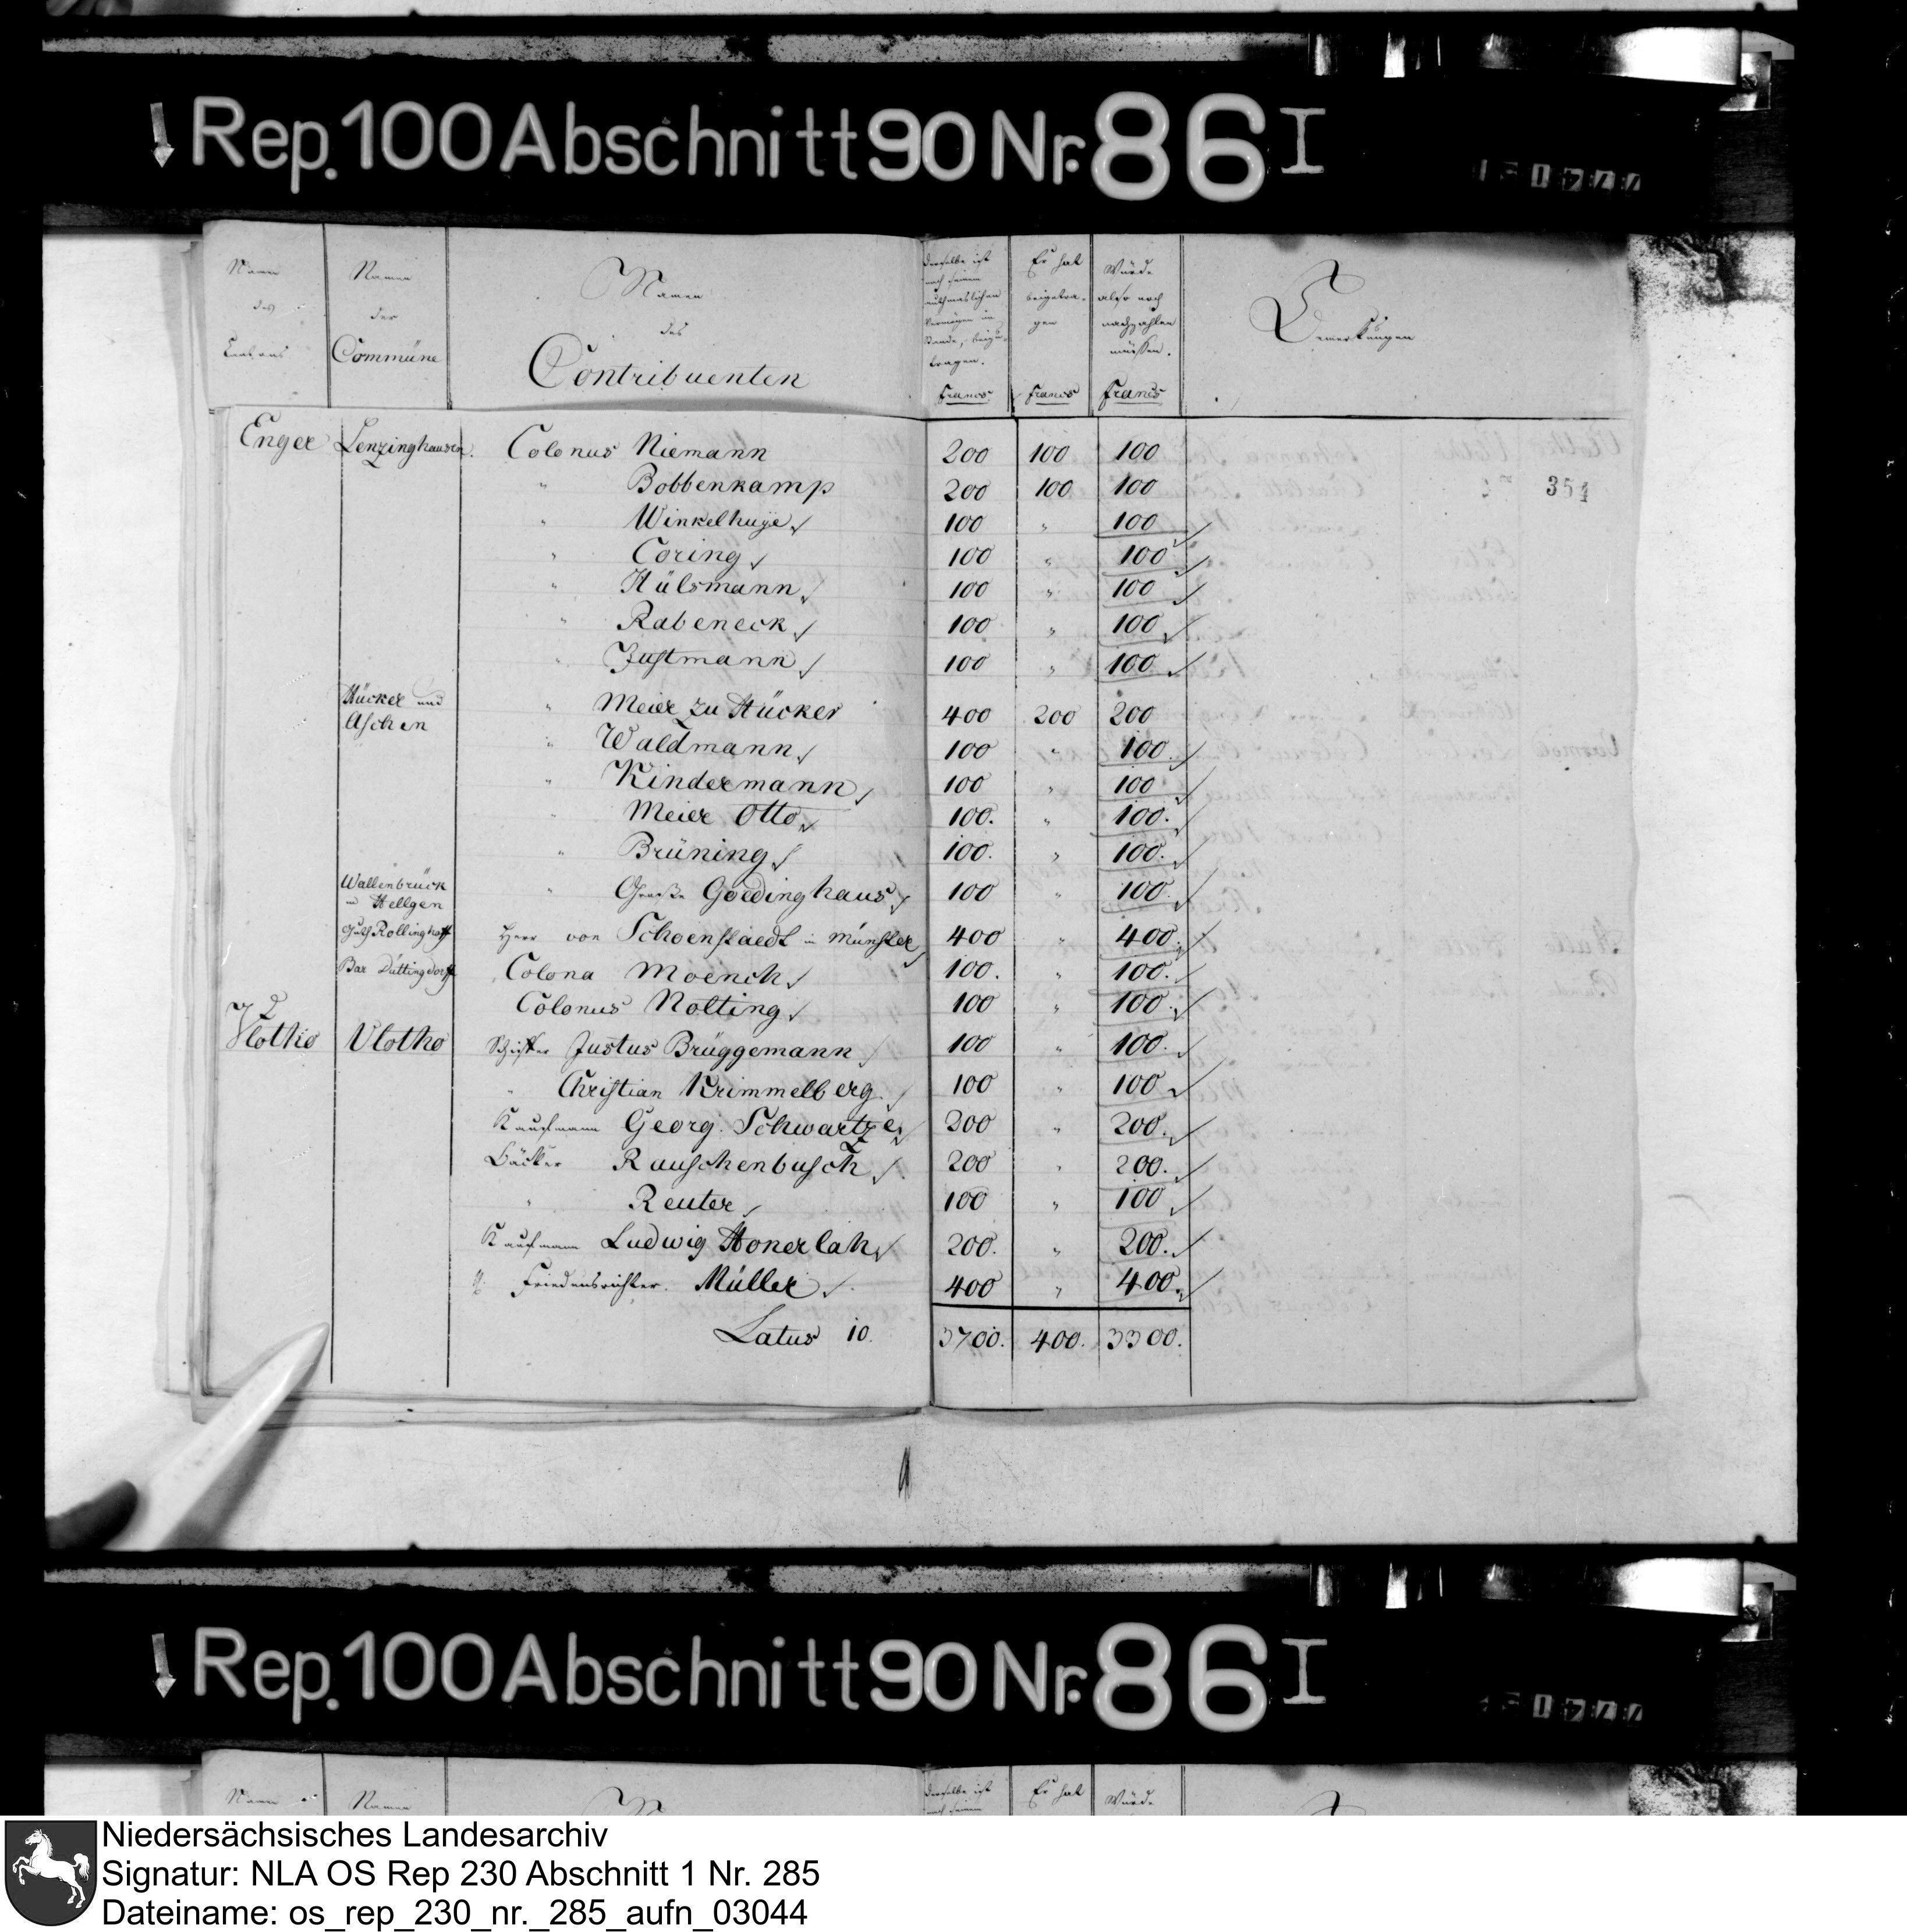 Rep. 100 Abschnitt 90 Nr. 86 I
Namen des Cantons
Namen der Commüne
Namen des Contribuenten
Derselbe ist nach seinem muthmaslichen Vermögen im Stande, beizutragen. Francs
Er hat beigetragen Francs
Würde also noch nachzahlen müssen. Francs
Bemerkungen
Enger Lenzinghausen. Colonus Niemann 200 100 100
" Bobbenkamp 200 100 100
354
" Winkelhuje 100 " 100
" Coring 100 " 100
" Hülsmann 100 " 100
" Rabeneck 100 " 100
" Justmann 100 " 100
Hücker und Aschen " Meier zu Hücker 400 200 200
" Waldmann 100 " 100.
" Kindermann 100 " 100
" Meier Otto 100. " 100.
" Brüning 100. " 100.
Wallenbrück u Hellgen " Große Goedinghaus 100 " 100.
Guth Rollinghoff Herr von Schoenstaedt in Münster 400 " 400.
Bar Düttingdorf Colona Moench 100. " 100.
Colonus Nolting 100 " 100.
Vlotho Vlotho Schiffer Justus Brüggemann 100 " 100.
" Christian Krimmelberg. 100 " 100
Kaufmann Georg Schwartze 200 " 200.
Bäcker Rauschenbusch 200 " 200.
" Reuter 100 " 100
Kaufmann Ludwig Honerlah 200. " 200.
H. Friedensrichter. Müller 400 " 400.
Latus 10. 3700. 400. 3300.
Rep. 100 Abschnitt 90 Nr. 86 I
Namen
Namen
Derselbe ist
nach seinem
Er hat
Würde
Niedersächsisches Landesarchiv
Signatur: NLA OS Rep 230 Abschnitt 1 Nr. 285
Dateiname: os_rep_230_nr._285_aufn_03044